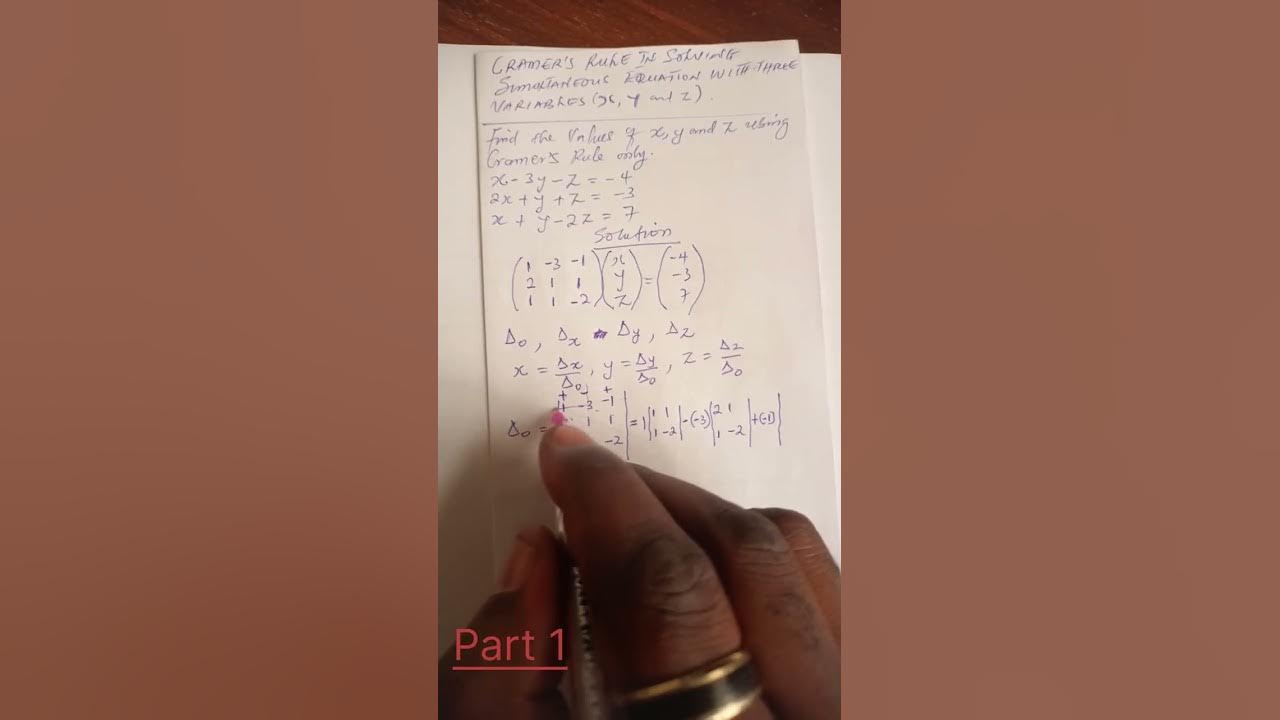 CRAMER'S RULE IN SOLVING
SIMULTANEOUS EQUATION WITH THREE
VARIABLES (x, y and z).
Find the values of x, y and z using
Cramer's Rule only.
x - 3y - z = -4
2x + y + z = -3
x + y - 2z = 7
Solution
( 1 -3 -1 ) ( x ) ( -4 )
( 2 1 1 ) ( y ) = ( -3 )
( 1 1 -2 ) ( z ) ( 7 )
Δ₀, Δx Δy, Δz
x = Δx/Δ₀, y = Δy/Δ₀, z = Δz/Δ₀
+ - +
1 -3 -1 |
Δ₀ = 1 1 | = 1 | 1 1 | - (-3) | 2 1 | + (-1) |
-2 | | 1 -2 | | 1 -2 |
Part 1